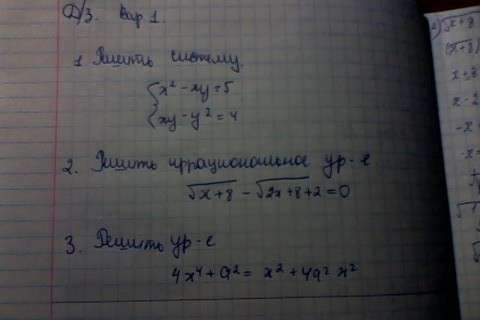 Д/З. Вар 1.
1 Решить систему.
x² - xy = 5
xy - y² = 4
2. Решить иррациональное ур-е
√x+8 - √2x+8+2 = 0
3. Решить ур-е
4x⁴ + a² = x² + 4a² x²
√x+8
x+8